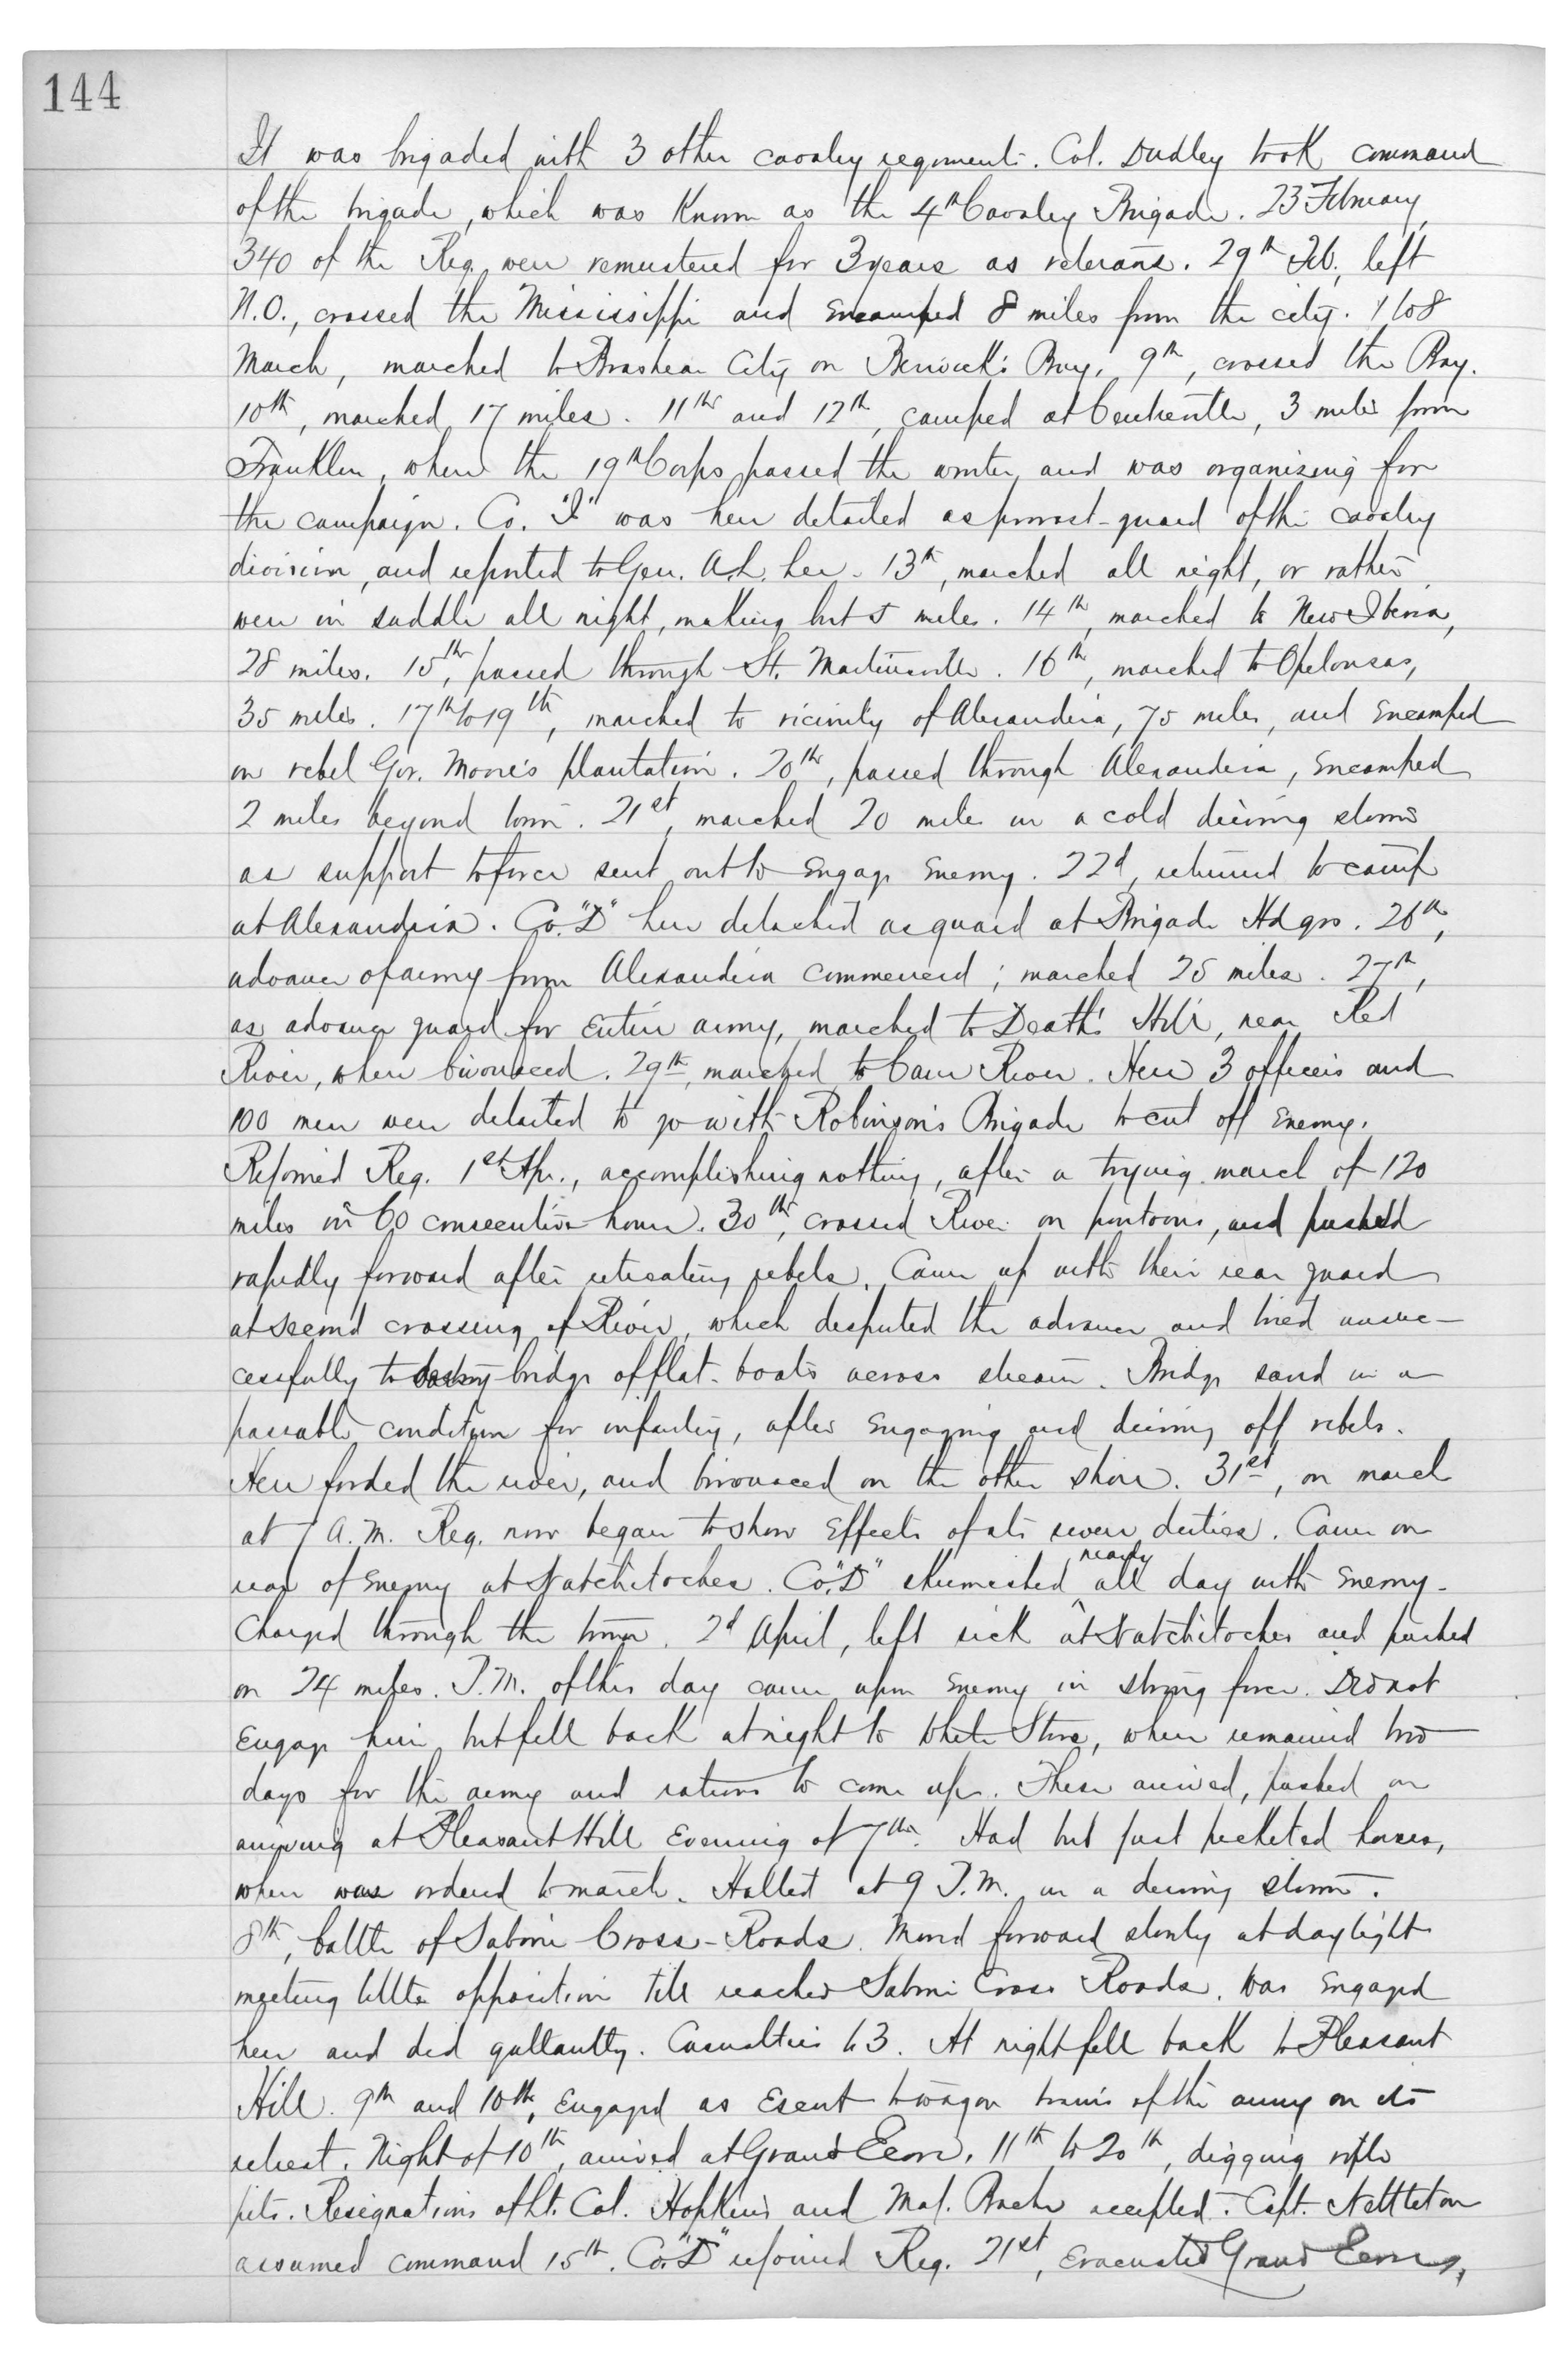 144
It was brigaded with 3 other cavalry regiments. Col. Dudley took command
of the brigade, which was known as the 4th Cavalry Brigade. 23 February,
340 of the Reg. were remustered for 3 years as veterans. 29th Feb., left
N.O., crossed the Mississippi and encamped 8 miles from the city. 1 to 8
March, marched to Brashear City on Berwick's Bay. 9th, crossed the Bay.
10th, marched 17 miles. 11th and 12th, camped at Centreville, 3 miles from
Franklin, where the 19th Corps passed the winter, and was organizing for
the campaign. Co. "I" was here detailed as provost-guard of the cavalry
division, and reported to Gen. A.L. Lee. 13th, marched all night, or rather
were in saddle all night, making but 5 miles. 14th, marched to New Iberia,
28 miles. 15th, passed through St. Martinsville. 16th, marched to Opelousas,
35 miles. 17th to 19th, marched to vicinity of Alexandria, 75 miles, and encamped
on rebel Gov. Moore's plantation. 20th, passed through Alexandria, encamped
2 miles beyond town. 21st, marched 20 miles in a cold driving storm
as support to force sent out to engage enemy. 22d, returned to camp
at Alexandria. Co. "D" here detached as guard at Brigade Hdqrs. 26th,
advance of army from Alexandria commenced; marched 25 miles. 27th,
as advance guard for entire army, marched to Death's Hill, near Red
River, where bivouaced. 29th, marched to Cane River. Here 3 officers and
100 men were detailed to go with Robinson's Brigade to cut off enemy.
Rejoined Reg. 1st Apr., accomplishing nothing, after a trying march of 120
miles in 60 consecutive hours. 30th, crossed River on pontoons, and pushed
rapidly forward after retreating rebels. Came up with their rear guard
at second crossing of River, which disputed the advance and tried unsuc-
cessfully to destroy bridge of flat-boats across stream. Bridge saved in a
passable condition for infantry, after engaging and driving off rebels.
Here forded the river, and bivouaced on the other shore. 31st, on march
at 7 A.M. Reg. now began to show effects of its severe duties. Came on
rear of enemy at Natchitoches. Co. "D" skirmished nearly all day with enemy.
Charged through the town. 2d April, left sick at Natchitoches and pushed
on 24 miles. P.M. of this day came upon enemy in strong force. Did not
engage him, but fell back at night to White Store, where remained two
days for the army and rations to come up. These arrived, pushed on
arriving at Pleasant Hill evening of 7th. Had but just picketed horses,
when was ordered to march. Halted at 9 P.M. in a driving storm.
8th, battle of Sabine Cross-Roads. Moved forward slowly at daylight
meeting little opposition till reached Sabine Cross Roads. Was engaged
here and did gallantly. Casualties 63. At night fell back to Pleasant
Hill. 9th and 10th, engaged as escort to wagon trains of the army on its
retreat. Night of 10th, arrived at Grand Ecore. 11th to 20th, digging rifle
pits. Resignations of Lt. Col. Hopkins and Maj. Bache accepted. Capt. Nettleton
assumed command 15th. Co. "D" rejoined Reg. 21st, evacuated Grand Ecore,